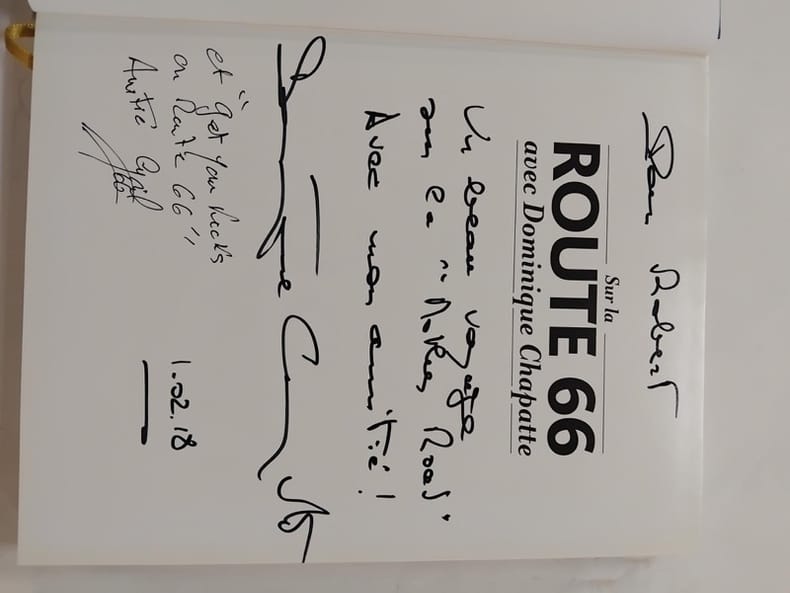 Pour Robert
Sur la
ROUTE 66
avec Dominique Chapatte
Un beau voyage
sur la "Mother Road"
Avec mon amitié !
Dominique Chapatte
et "get your kicks
on Route 66"
Amitié Cyril
1.02.18